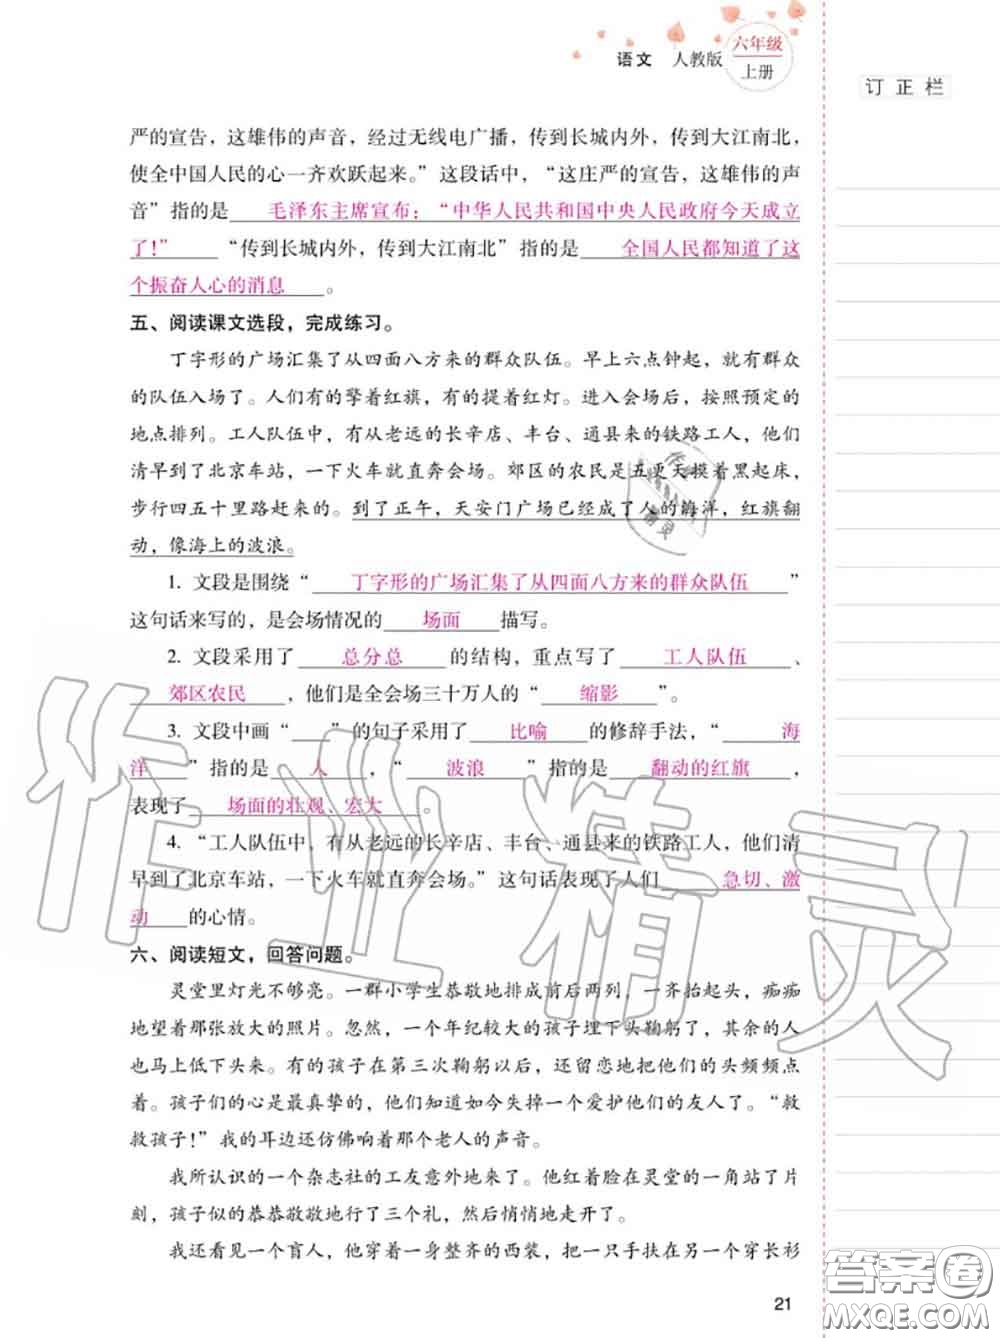 语文 人教版 六年级
上册
订正栏
严的宣告，这雄伟的声音，经过无线电广播，传到长城内外，传到大江南北，
使全中国人民的心一齐欢跃起来。”这段话中，“这庄严的宣告，这雄伟的声
音”指的是 毛泽东主席宣布：“中华人民共和国中央人民政府今天成立
了！” “传到长城内外，传到大江南北”指的是 全国人民都知道了这
个振奋人心的消息 。
五、阅读课文选段，完成练习。
丁字形的广场汇集了从四面八方来的群众队伍。早上六点钟起，就有群众
的队伍入场了。人们有的擎着红旗，有的提着红灯。进入会场后，按照预定的
地点排列。工人队伍中，有从老远的长辛店、丰台、通县来的铁路工人，他们
清早到了北京车站，一下火车就直奔会场。郊区的农民是五更天摸着黑起床，
步行四五十里路赶来的。到了正午，天安门广场已经成了人的海洋，红旗翻
动，像海上的波浪。
1. 文段是围绕“ 丁字形的广场汇集了从四面八方来的群众队伍 ”
这句话来写的，是会场情况的 场面 描写。
2. 文段采用了 总分总 的结构，重点写了 工人队伍 、
郊区农民 ，他们是全会场三十万人的“ 缩影 ”。
3. 文段中画“____”的句子采用了 比喻 的修辞手法，“ 海
洋 ”指的是 人 ，“ 波浪 ”指的是 翻动的红旗 ，
表现了 场面的壮观、宏大 。
4. “工人队伍中，有从老远的长辛店、丰台、通县来的铁路工人，他们清
早到了北京车站，一下火车就直奔会场。”这句话表现了人们 急切、激
动 的心情。
六、阅读短文，回答问题。
灵堂里灯光不够亮。一群小学生恭敬地排成前后两列，一齐抬起头，痴痴
地望着那张放大的照片。忽然，一个年纪较大的孩子埋下头鞠躬了，其余的人
也马上低下头来。有的孩子在第三次鞠躬以后，还留恋地把他们的头频频点
着。孩子们的心是最真挚的，他们知道如今失掉一个爱护他们的友人了。“救
救孩子！”我的耳边还仿佛响着那个老人的声音。
我所认识的一个杂志社的工友意外地来了。他红着脸在灵堂的一角站了片
刻，孩子似的恭恭敬敬地行了三个礼，然后悄悄地走开了。
我还看见一个盲人，他穿着一身整齐的西装，把一只手扶在另一个穿长衫
21
作业精灵
作业精灵
答案圈
MXQE.COM